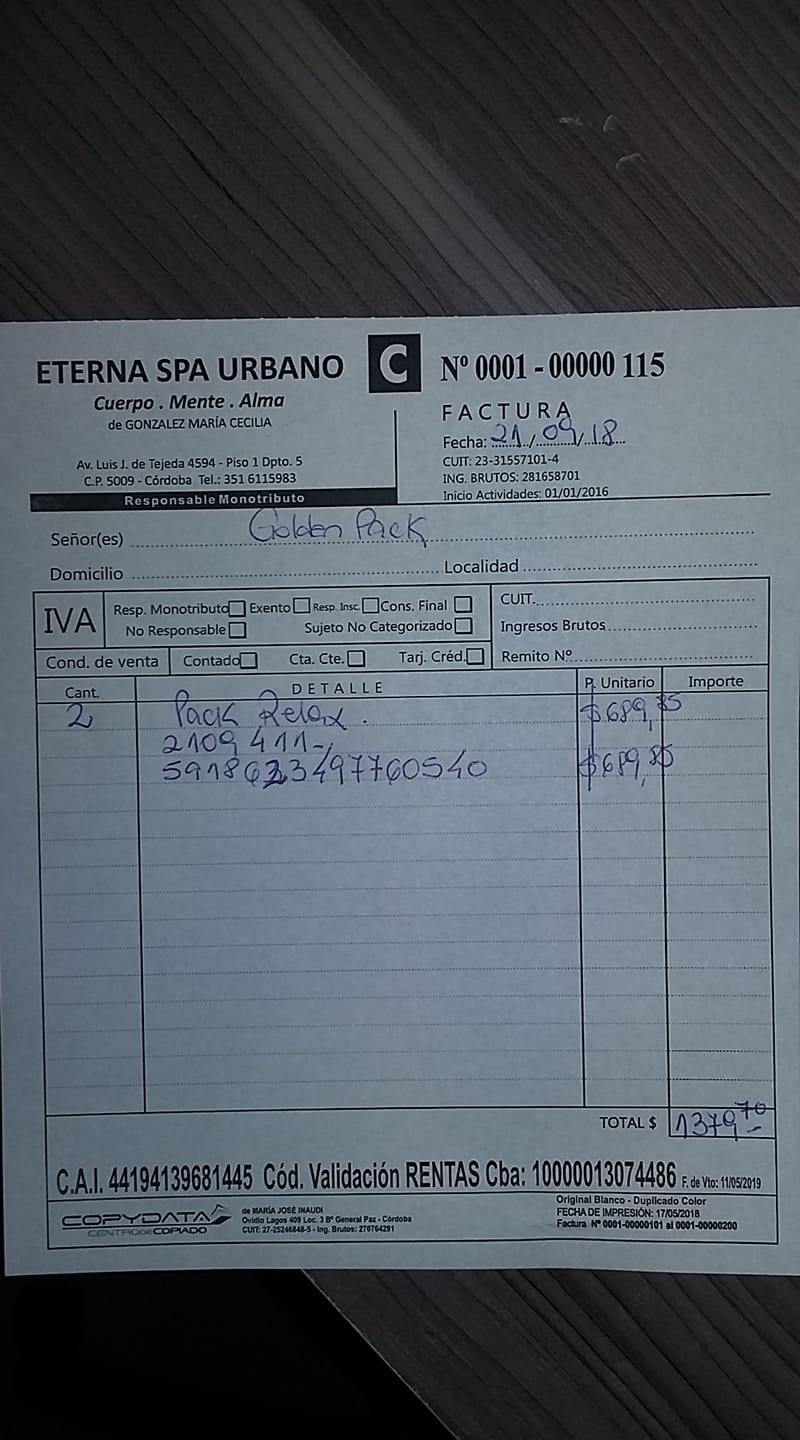 ETERNA SPA URBANO
Cuerpo . Mente . Alma
de GONZALEZ MARÍA CECILIA
Av. Luis J. de Tejeda 4594 - Piso 1 Dpto. 5
C.P. 5009 - Córdoba Tel.: 351 6115983
Responsable Monotributo
C
Nº 0001 - 00000 115
FACTURA
Fecha: 21/09/18
CUIT: 23-31557101-4
ING. BRUTOS: 281658701
Inicio Actividades: 01/01/2016
Señor(es) Golden Pack
Domicilio Localidad
IVA
Resp. Monotributo Exento Resp. Insc. Cons. Final
No Responsable Sujeto No Categorizado
CUIT.
Ingresos Brutos
Cond. de venta Contado Cta. Cte. Tarj. Créd.
Remito Nº
Cant. DETALLE P. Unitario Importe
2 Pack Relax. $689,85
2109411-,
5918623497760540 $689,85
TOTAL $ 1379,70
C.A.I. 44194139681445 Cód. Validación RENTAS Cba: 10000013074486 F. de Vto: 11/05/2019
COPYDATA
CENTRO DE COPIADO
de MARÍA JOSÉ INAUDI
Ovidio Lagos 409 Loc. 3 Bº General Paz - Córdoba
CUIT: 27-25246848-5 - Ing. Brutos: 270764291
Original Blanco - Duplicado Color
FECHA DE IMPRESIÓN: 17/05/2018
Factura Nº 0001-00000101 al 0001-00000200